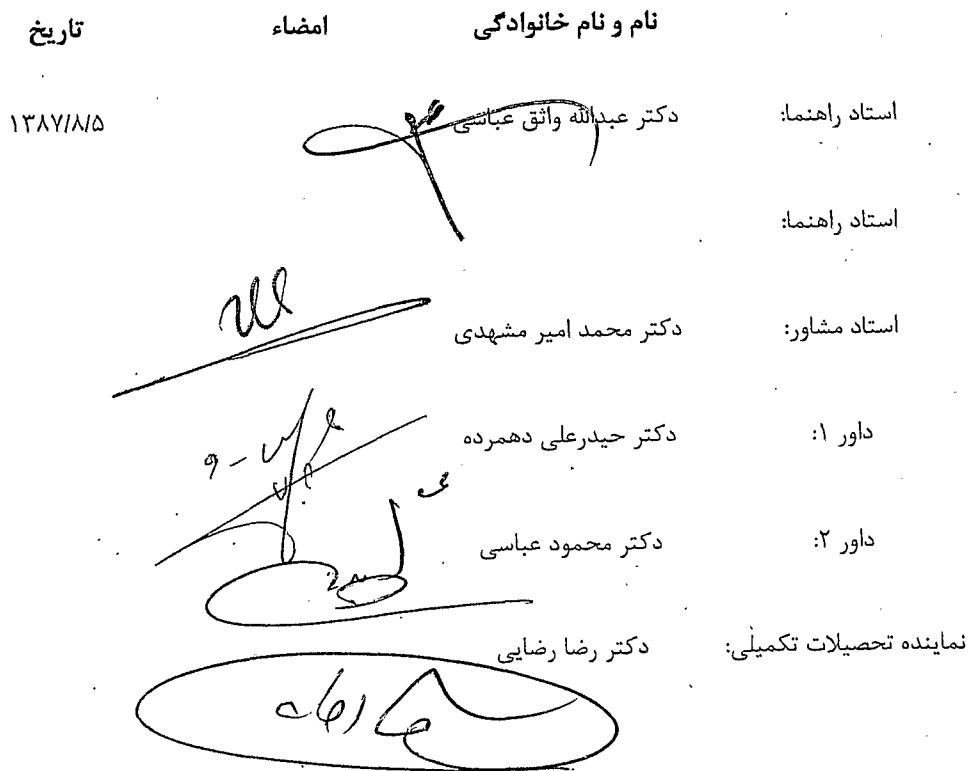 نام و نام خانوادگی امضاء تاریخ
استاد راهنما: دکتر عبدالله واثق عباسی ۱۳۸۷/۸/۵
استاد راهنما:
استاد مشاور: دکتر محمد امیر مشهدی
داور ۱: دکتر حیدرعلی دهمرده
داور ۲: دکتر محمود عباسی
نماینده تحصیلات تکمیلی: دکتر رضا رضایی